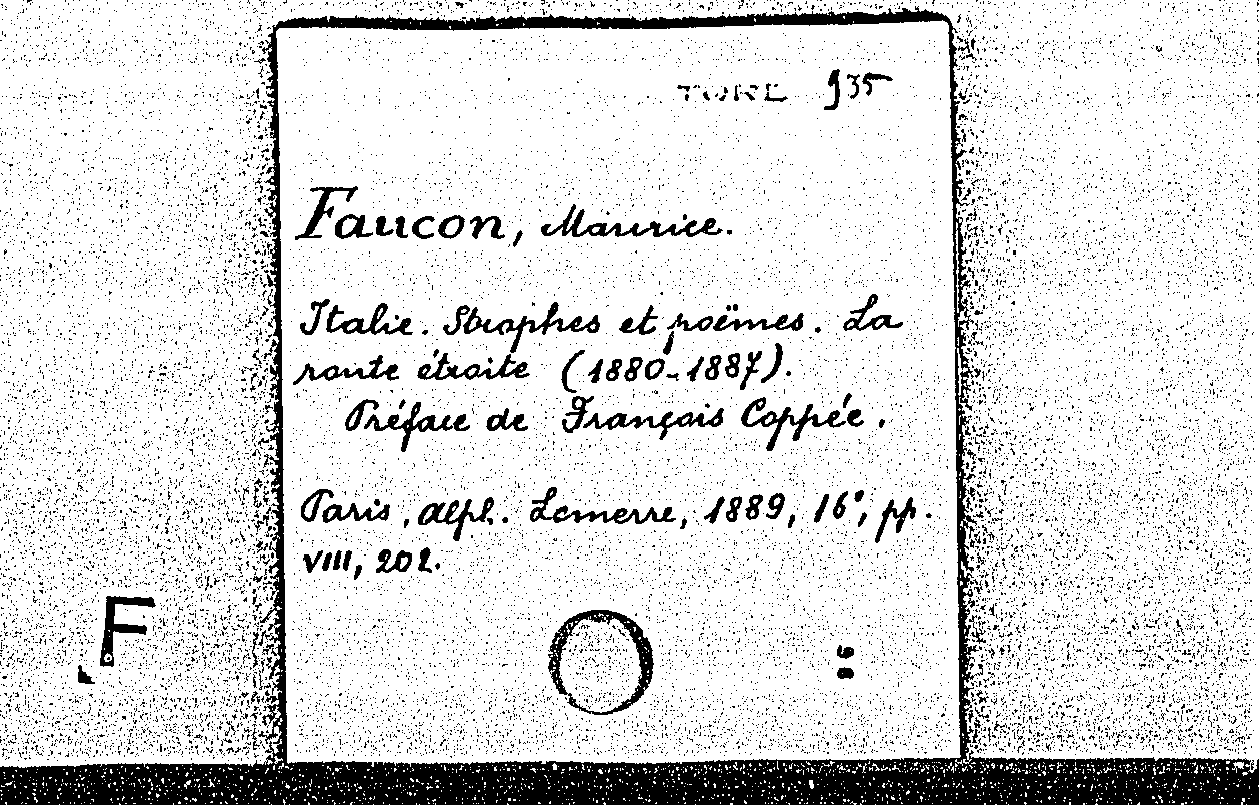 TORE 935
Faucon, Maurice.
Italie. Strophes et poëmes. La
route étroite (1880-1887).
Préface de François Coppée.
Paris, Alph. Lemerre, 1889, 16°, pp.
VIII, 202.
F